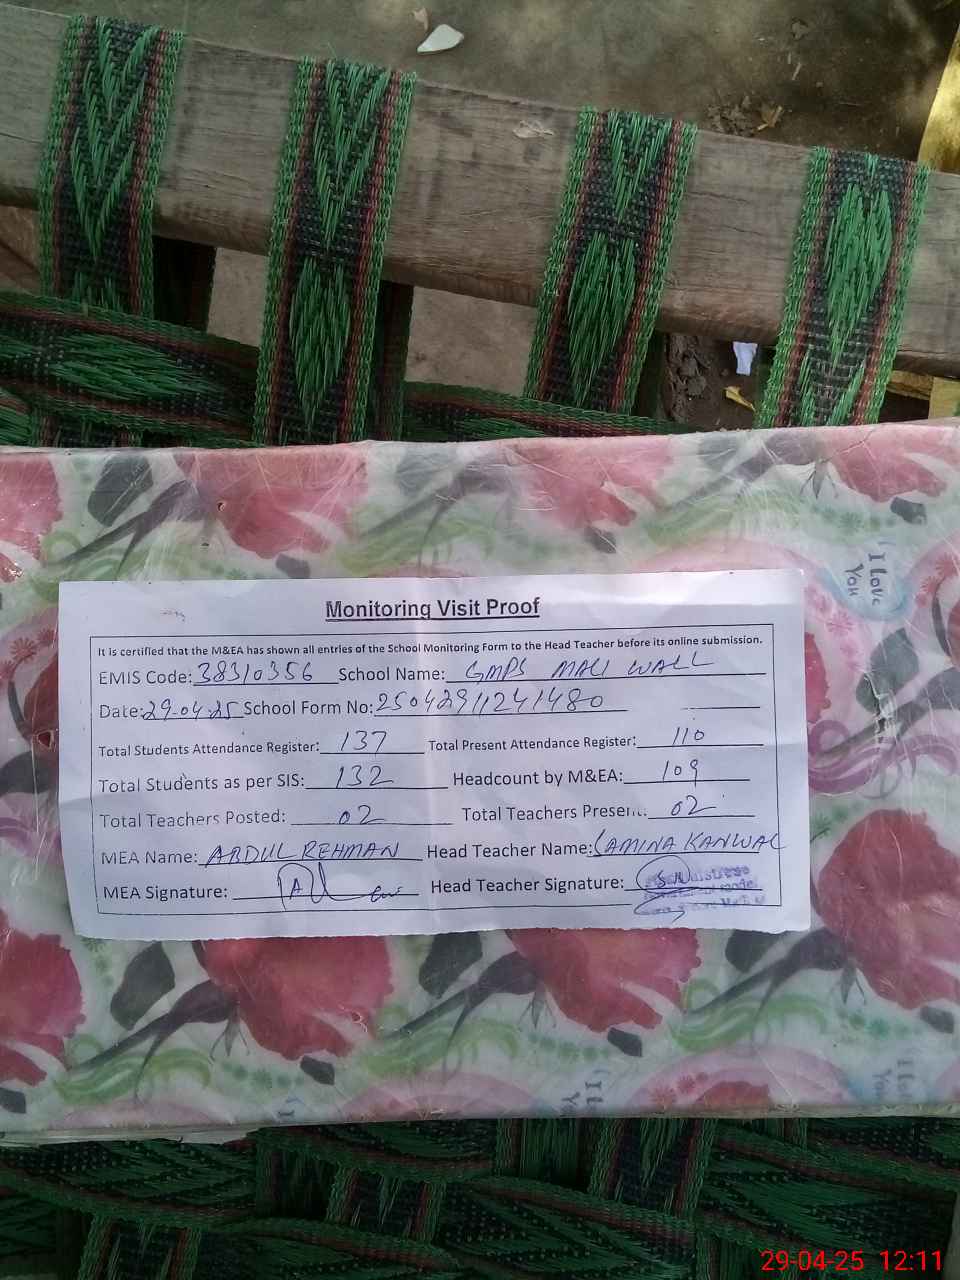 I Love
You
Monitoring Visit Proof
It is certified that the M&EA has shown all entries of the School Monitoring Form to the Head Teacher before its online submission.
EMIS Code: 38310356 School Name: GMPS MALI WALL
Date: 29-04-25 School Form No: 25042911241480
Total Students Attendance Register: 137 Total Present Attendance Register: 110
Total Students as per SIS: 132 Headcount by M&EA: 109
Total Teachers Posted: 02 Total Teachers Present: 02
MEA Name: ABDUL REHMAN Head Teacher Name: SAMINA KANWAL
MEA Signature: Head Teacher Signature:
29-04-25 12:11